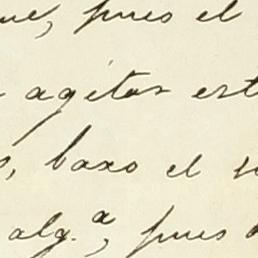 ue, pues el
agitar est
s, baxo el s
alg.ª, pues